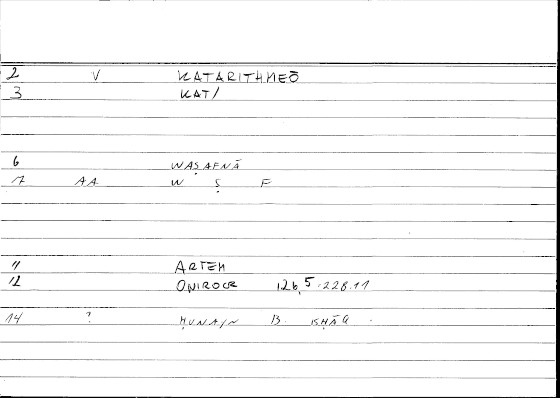 2 V KATARITHMEŌ
3 KAT/
6 WAṢAFNĀ
7 AA W Ṣ F
11 ARTEM
12 ONIROCR 126,5 - 228.11
14 ? ḤUNAYN B. ISḤĀQ